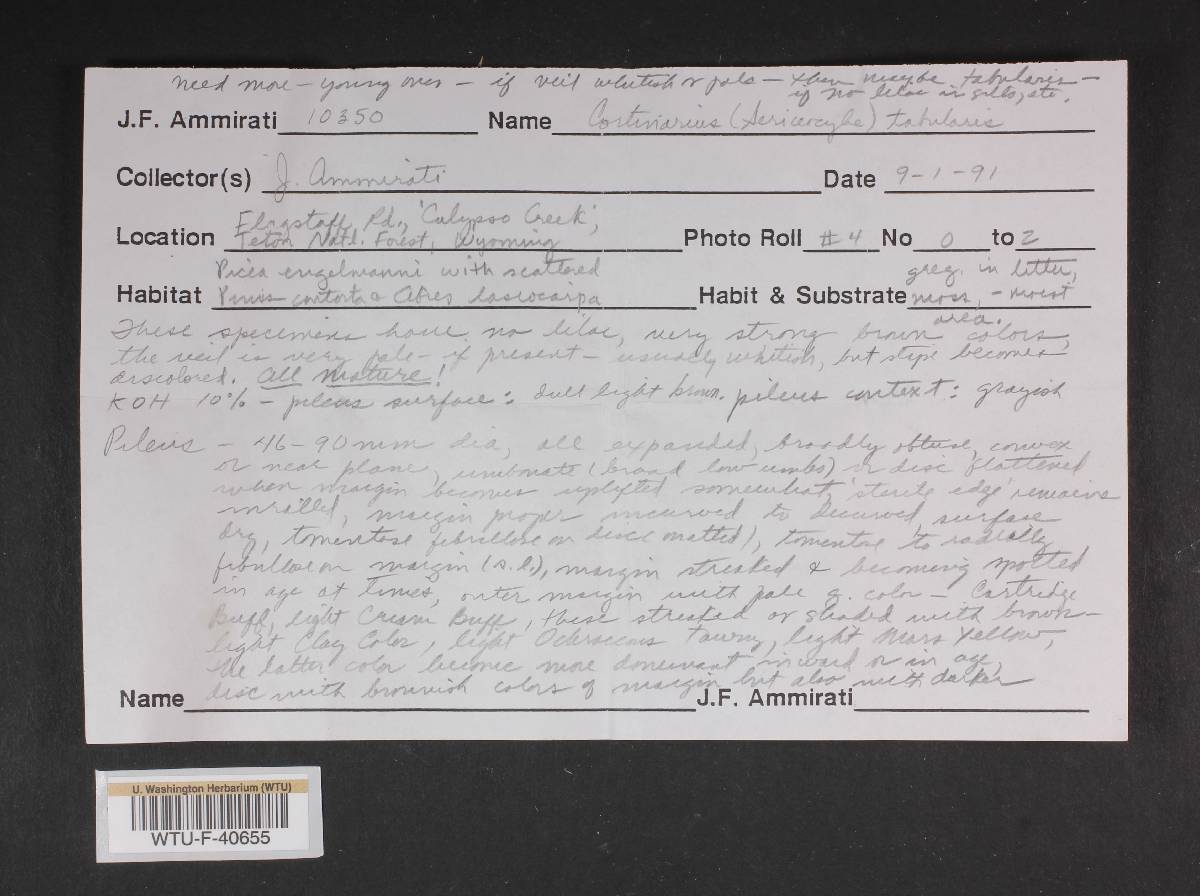 need more - young ones - if veil whitish or pale - then maybe tabularis -
if no lilac in gills, etc.
J.F. Ammirati 10350 Name Cortinarius (Sericeocybe) tabularis
Collector(s) J. Ammirati Date 9-1-91
Flagstaff Rd., 'Calypso Creek',
Location Teton Natl. Forest, Wyoming Photo Roll #4 No 0 to 2
Picea engelmannii with scattered greg. in litter,
Habitat Pinus contorta & Abies lasiocarpa Habit & Substrate moss, - moist
area.
These specimens have no lilac, very strong brown colors,
the veil is very pale - if present - usually whitish, but stipe becomes
discolored. All mature!
KOH 10% - pileus surface: dull light brown. pileus context: grayish
Pileus - 46-90mm dia, all expanded, broadly obtuse, convex
or near plane, umbonate (broad low umbo) or disc flattened
when margin becomes uplifted somewhat, 'sterile edge' remains
inrolled, margin proper incurved to decurved, surface
dry, tomentose fibrillose on disc (matted), tomentose to radially
fibrillose on margin (s.l.), margin streaked & becoming spotted
in age at times, outer margin with pale g. color - Cartridge
Buff, light Cream Buff, these streaked or shaded with brown -
light Clay Color, light Ochraceous Tawny, light Mars Yellow,
the latter color become more dominant inward or in age,
disc with brownish colors of margin but also with darker
Name J.F. Ammirati
U. Washington Herbarium (WTU)
WTU-F-40655